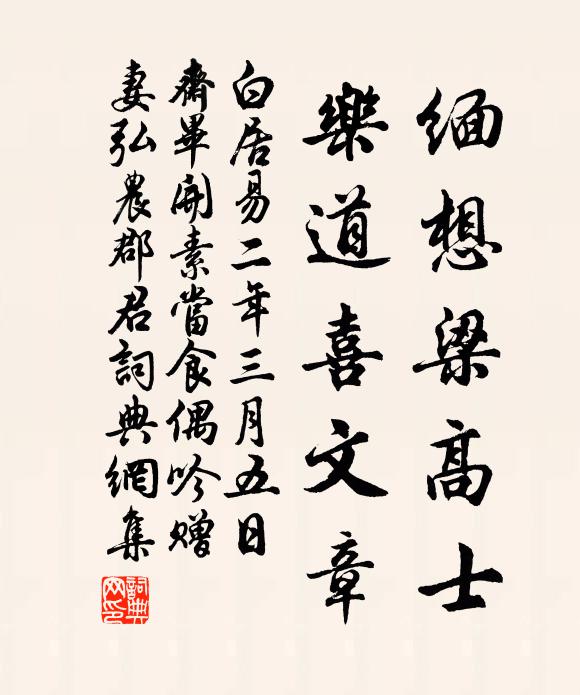 緬想梁高士
樂道喜文章
白居易二年三月五日
齋畢開素當食偶吟贈
妻弘農郡君詞典網集
詞典網印